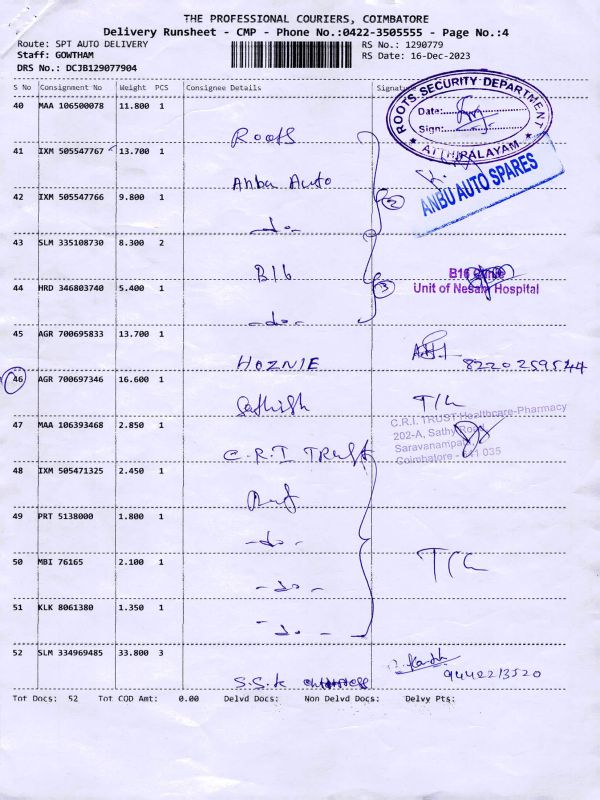 THE PROFESSIONAL COURIERS, COIMBATORE
Delivery Runsheet - CMP - Phone No.:0422-3505555 - Page No.:4
Route: SPT AUTO DELIVERY RS No.: 1290779
Staff: GOWTHAM RS Date: 16-Dec-2023
DRS No.: DCJB129077904
S No Consignment No Weight PCS Consignee Details Signature
40 MAA 106500078 11.800 1
Roots
ROOTS SECURITY DEPARTMENT
Date:
Sign:
ATHIPALAYAM
41 IXM 505547767 13.700 1
Anbu Auto
ANBU AUTO SPARES
42 IXM 505547766 9.800 1
-do- 2
43 SLM 335108730 8.300 2
B16
B16
Unit of Nesam Hospital
44 HRD 346803740 5.400 1
-do- 3
45 AGR 700695833 13.700 1
HOZNIE 8220259544
46 AGR 700697346 16.600 1
Sathish T/C
47 MAA 106393468 2.850 1
C.R.I TRUST
C.R.I. TRUST Healthcare-Pharmacy
202-A, Sathy Road
Saravanampatti
Coimbatore - 641 035
48 IXM 505471325 2.450 1
49 PRT 5138000 1.800 1
-do-
50 MBI 76165 2.100 1
-do- T/C
51 KLK 8061380 1.350 1
-do-
52 SLM 334969485 33.800 3
S.S.K 9442213520
Tot Docs: 52 Tot COD Amt: 0.00 Delvd Docs: Non Delvd Docs: Delvy Pts: